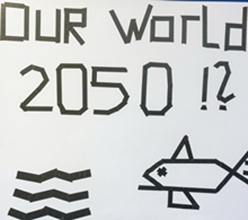 OUR World
2050 !?